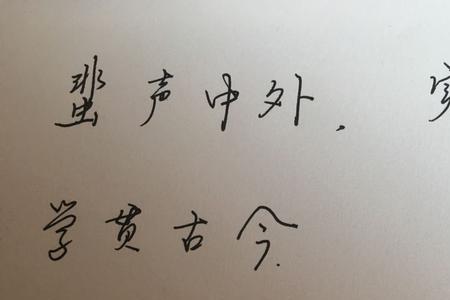 蜚声中外，
学贯古今